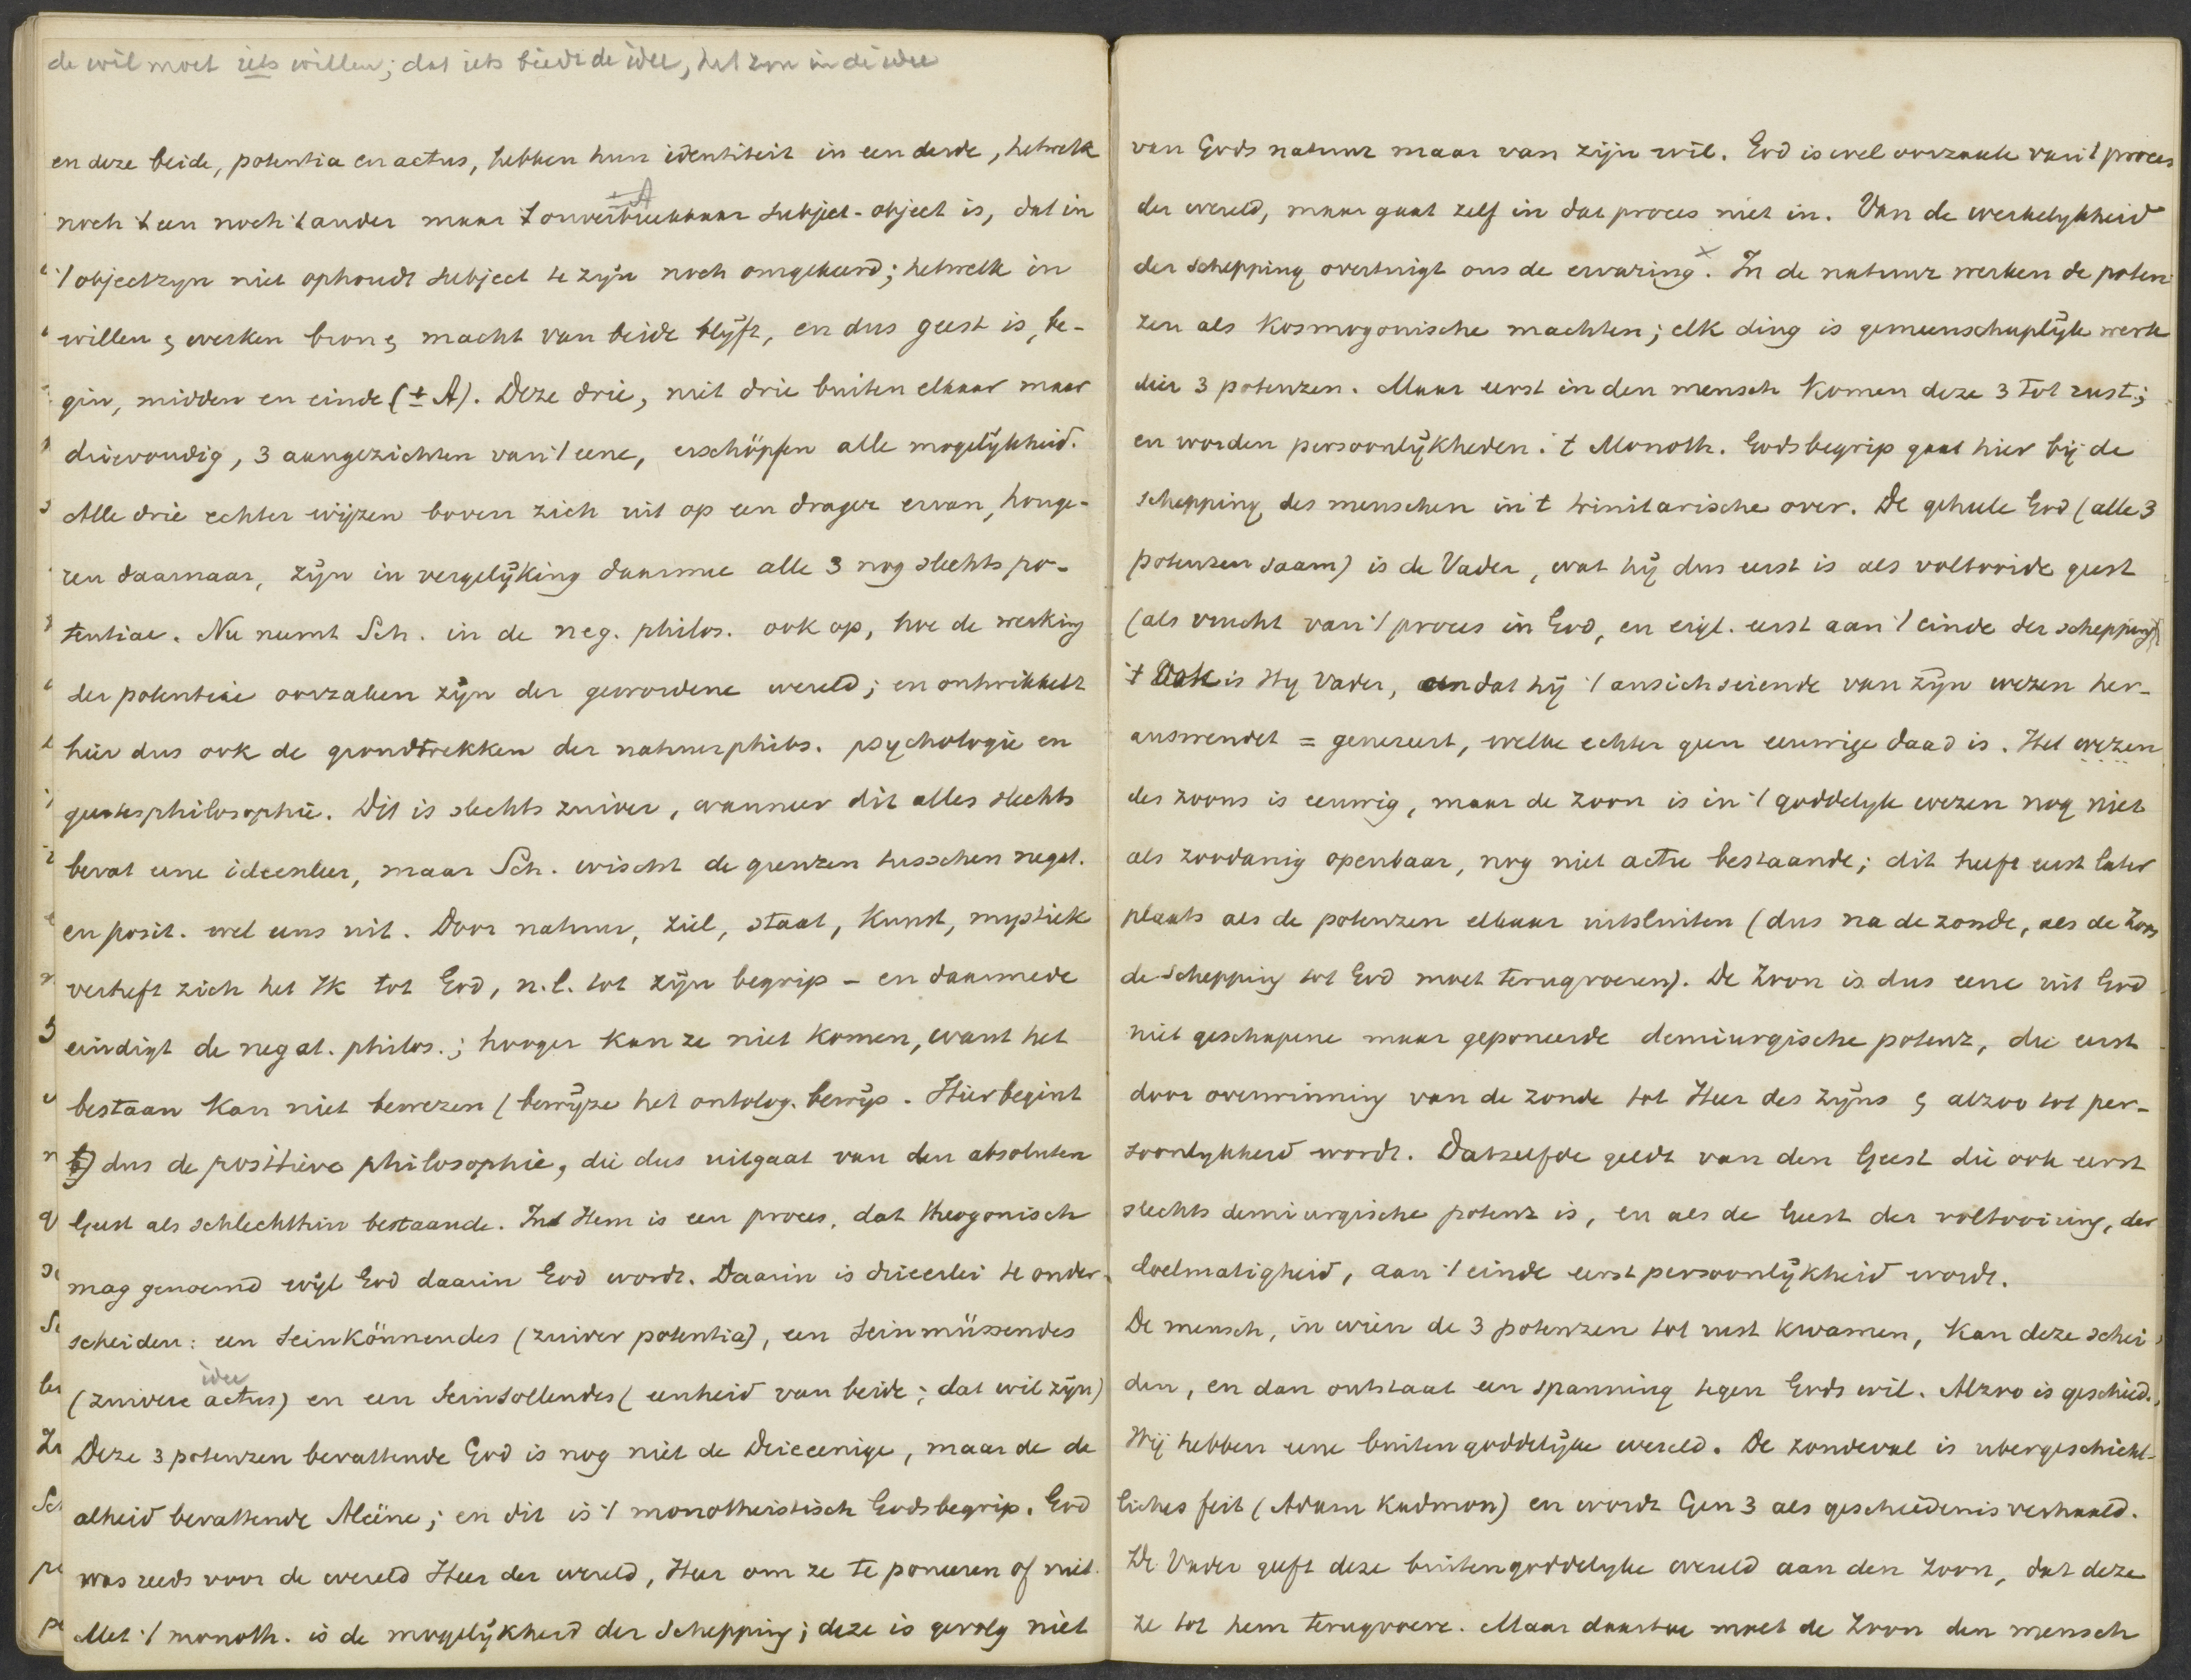 de wil moet iets willen; dat iets biedt de idee, het zyn in de idee
en deze beide, potentia en actus, hebben hun identiteit in een derde, hetwelk
± A
noch 't een noch 't ander maar 't onverbreekbaar subject-object is, dat in
't objectzyn niet ophoudt subject te zijn noch omgekeerd; hetwelk in
willen & werken bron & macht van beide blijft, en dus geest is, be-
gin, midden en einde (± A). Deze drie, niet drie buiten elkaar maar
drievoudig, 3 aangezichten van 't eene, erschöpfen alle mogelijkheid.
Alle drie echter wijzen boven zich uit op een drager ervan, honge-
ren daarnaar, zijn in vergelijking daarmee alle 3 nog slechts po-
tentiae. Nu neemt Sch. in de neg. philos. ook op, hoe de werking
der potentiae oorzaken zijn der gewordene wereld; en ontwikkelt
hier dus ook de grondtrekken der natuurphilos. psychologie en
geestesphilosophie. Dit is slechts zuiver, wanneer dit alles slechts
bevat eene ideenleer, maar Sch. wischt de grenzen tusschen negat.
en posit. wel eens uit. Door natuur, ziel, staat, kunst, mystiek
verheft zich het Ik tot God, n.l. tot zijn begrip - en daarmede
eindigt de negat. philos.; hooger kan ze niet komen, want het
bestaan kan niet bewezen (bewijze het ontolog. bewijs. Hier begint
b) dus de positieve philosophie, die dus uitgaat van den absoluten
Geest als schlechthin bestaande. In Hem is een proces, dat theogonisch
mag genoemd wijl God daarin God wordt. Daarin is drieerlei te onder-
scheiden: een seinkönnendes (zuiver potentia), een seinmüssendes
idee
(zuivere actus) en een Seinsollendes (eenheid van beide; dat wil zijn)
Deze 3 potenzen bevattende God is nog niet de Drieeenige, maar de de
alheid bevattende Aleine; en dit is 't monotheistisch Godsbegrip. God
was reeds voor de wereld Heer der wereld, Heer om ze te poneeren of niet.
Met 't monoth. is de mogelijkheid der Schepping; deze is gevolg niet
van Gods natuur maar van zijn wil. God is wel oorzaak van 't proces
der wereld, maar gaat zelf in dat proces niet in. Van de werkelykheid
der schepping overtuigt ons de ervaring ×. In de natuur werken de poten-
zen als kosmogonische machten; elk ding is gemeenschaplijk werk
dier 3 potenzen. Maar eerst in den mensch komen deze 3 tot rust;
en worden persoonlijkheden. 't Monoth. Godsbegrip gaat hier bij de
schepping des menschen in 't trinitarische over. De geheele God (alle 3
potenzen saam) is de Vader, wat hij dus eerst is als voltooide geest
(als vrucht van 't proces in God, en eigl. eerst aan 't einde der schepping)
Ook is Hy Vader, omdat hij 't ansichseiende van zijn wezen her-
auswendet = genereert, welke echter geen eeuwige daad is. Het wezen
des zoons is eeuwig, maar de zoon is in 't goddelyk wezen nog niet
als zoodanig openbaar, nog niet actu bestaande; dit heeft eerst later
plaats als de potenzen elkaar uitsluiten (dus na de zonde, als de Zoon
de schepping tot God moet terugvoeren). De Zoon is dus eene uit God
niet geschapene maar geponeerde demiurgische potenz, die eerst
door overwinning van de zonde tot Heer des zijns & alzoo tot per-
soonlykheid wordt. Datzelfde geldt van den Geest die ook eerst
slechts demiurgische potenz is, en als de Geest der voltooiing, der
doelmatigheid, aan 't einde eerst persoonlijkheid wordt.
De mensch, in wien de 3 potenzen tot rust kwamen, kan deze schei-
den, en dan ontstaat een spanning tegen Gods wil. Alzoo is geschied.
Wij hebben eene buitengoddelijke wereld. De zondeval is ubergeschicht-
liches feit (Adam Kadmon) en wordt Gen 3 als geschiedenis verhaald.
De Vader geeft deze buitengoddelyke wereld aan den Zoon, dat deze
ze tot hem terugvoere. Maar daartoe moet de Zoon den mensch